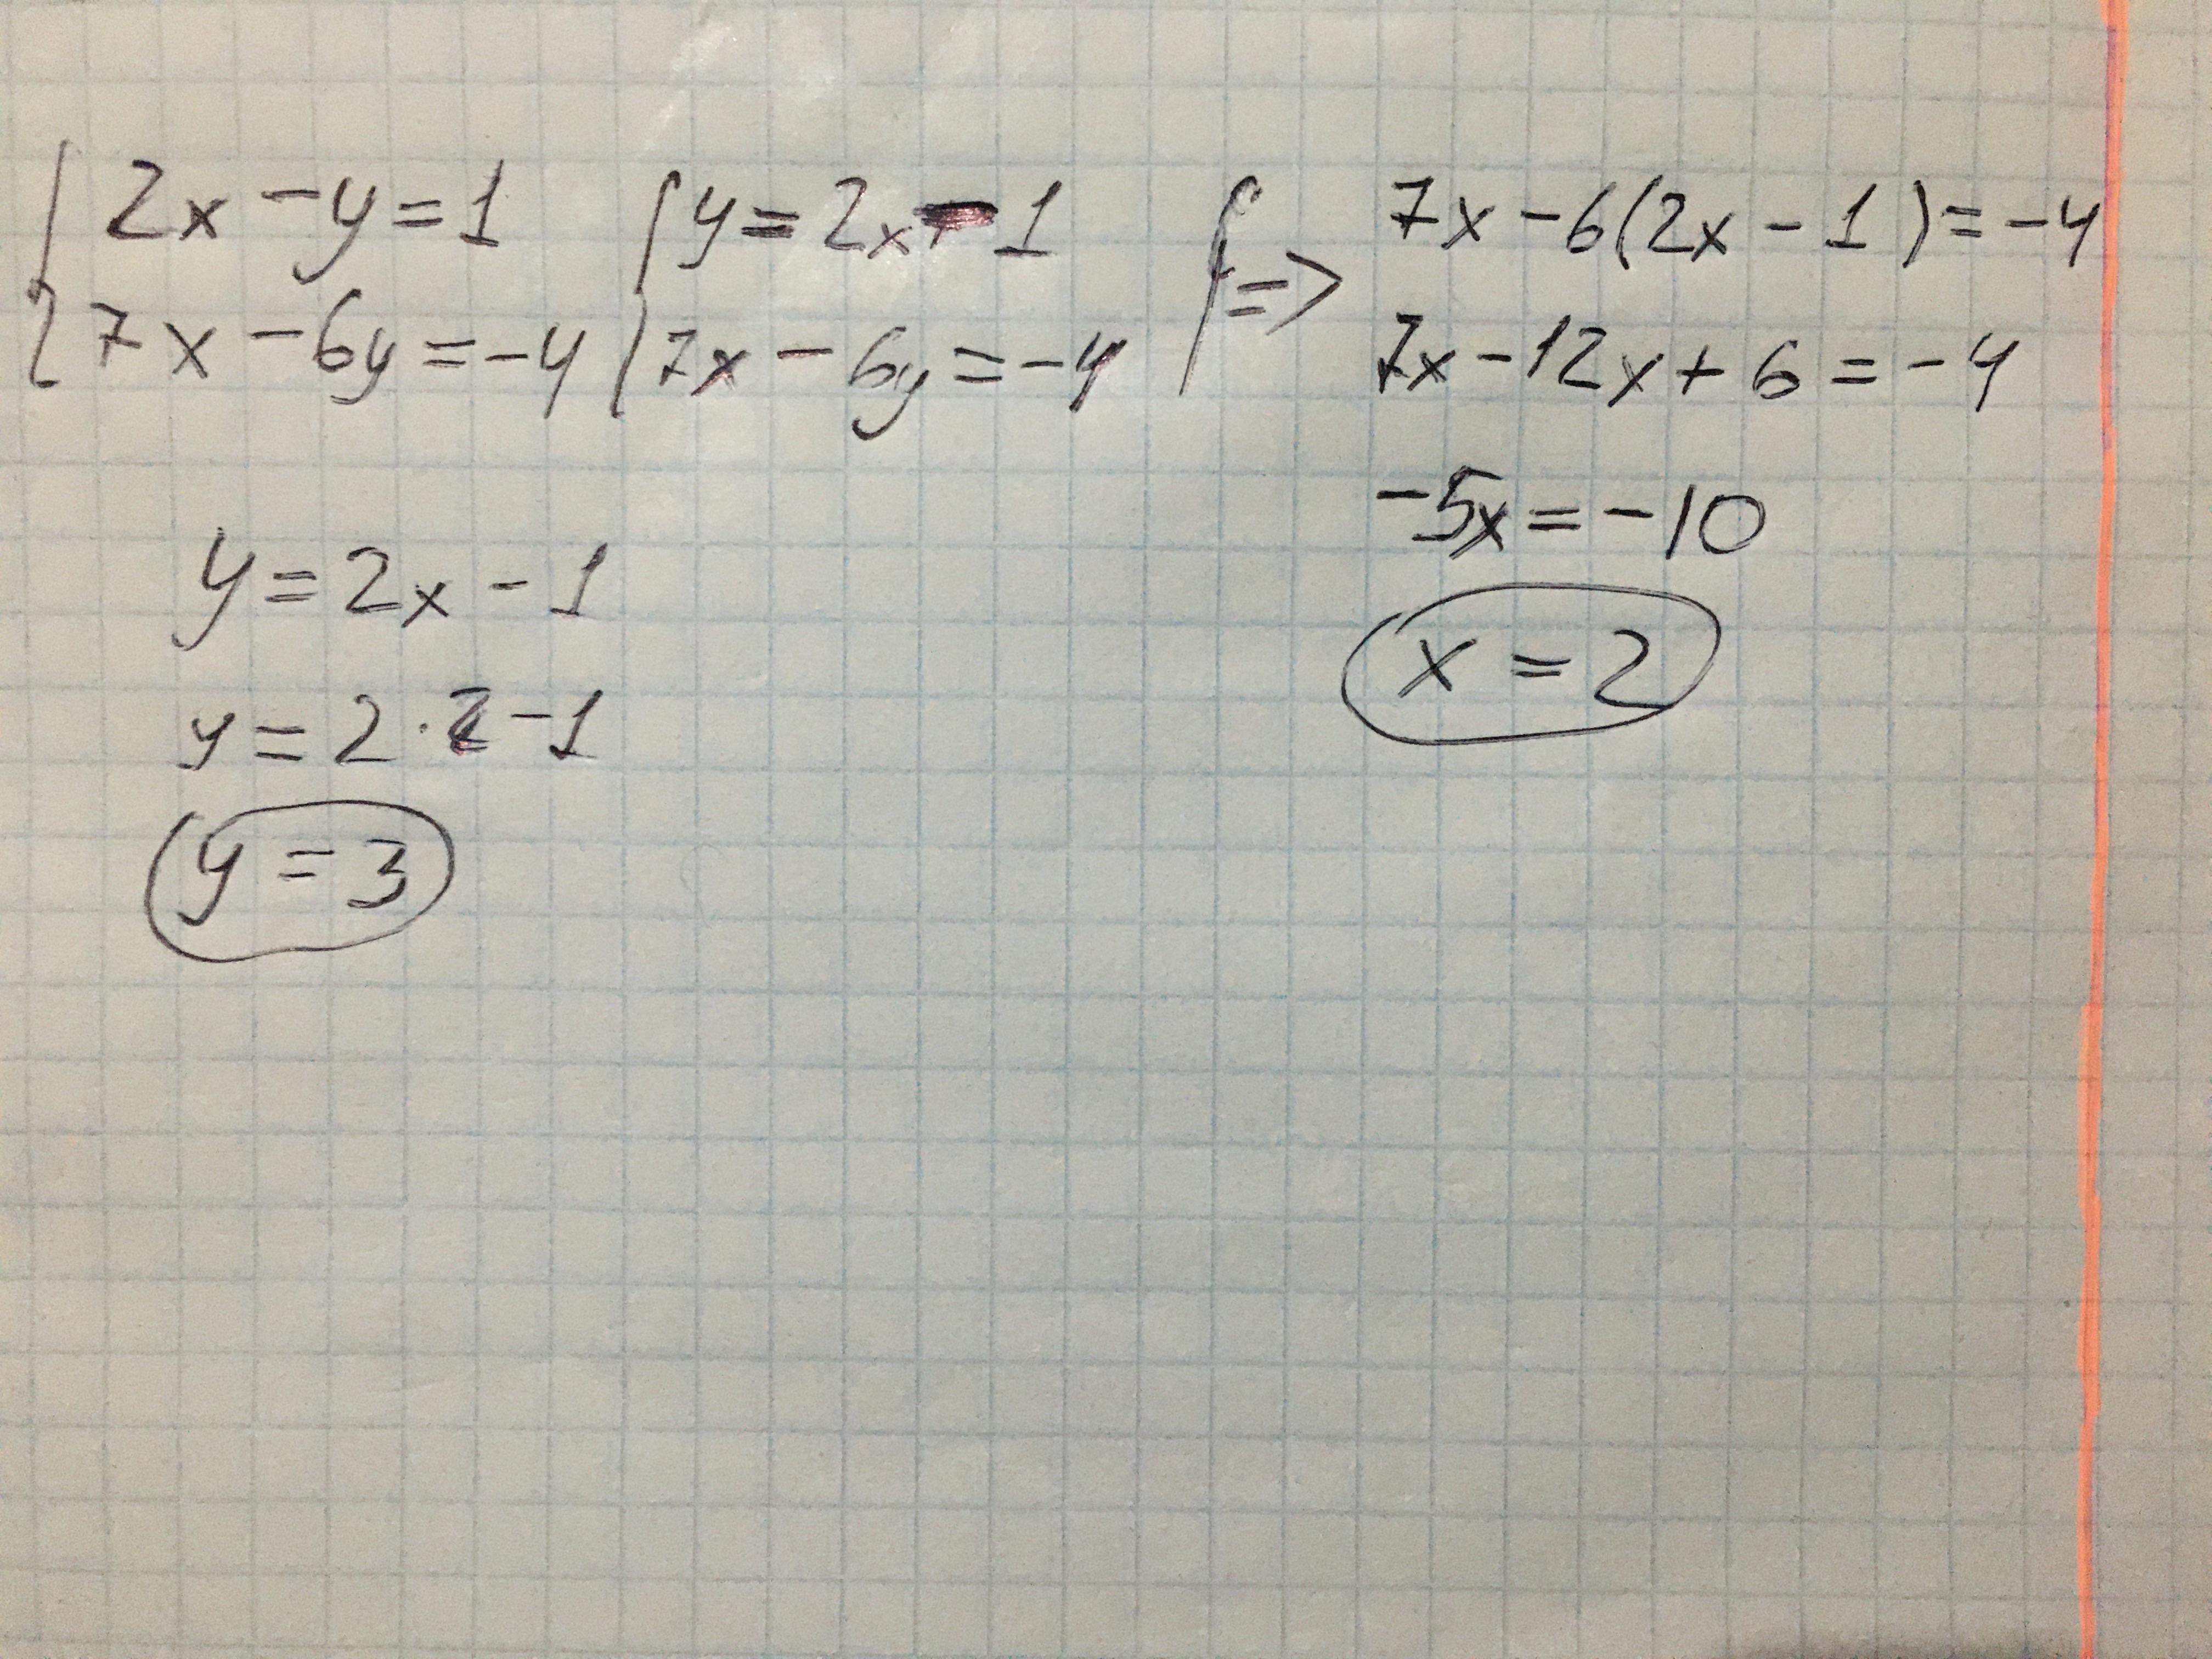 { 2x - y = 1
{ 7x - 6y = -4
{ y = 2x - 1
{ 7x - 6y = -4
{ => 7x - 6(2x - 1) = -4
7x - 12x + 6 = -4
-5x = -10
x = 2
y = 2x - 1
y = 2 · 2 - 1
y = 3